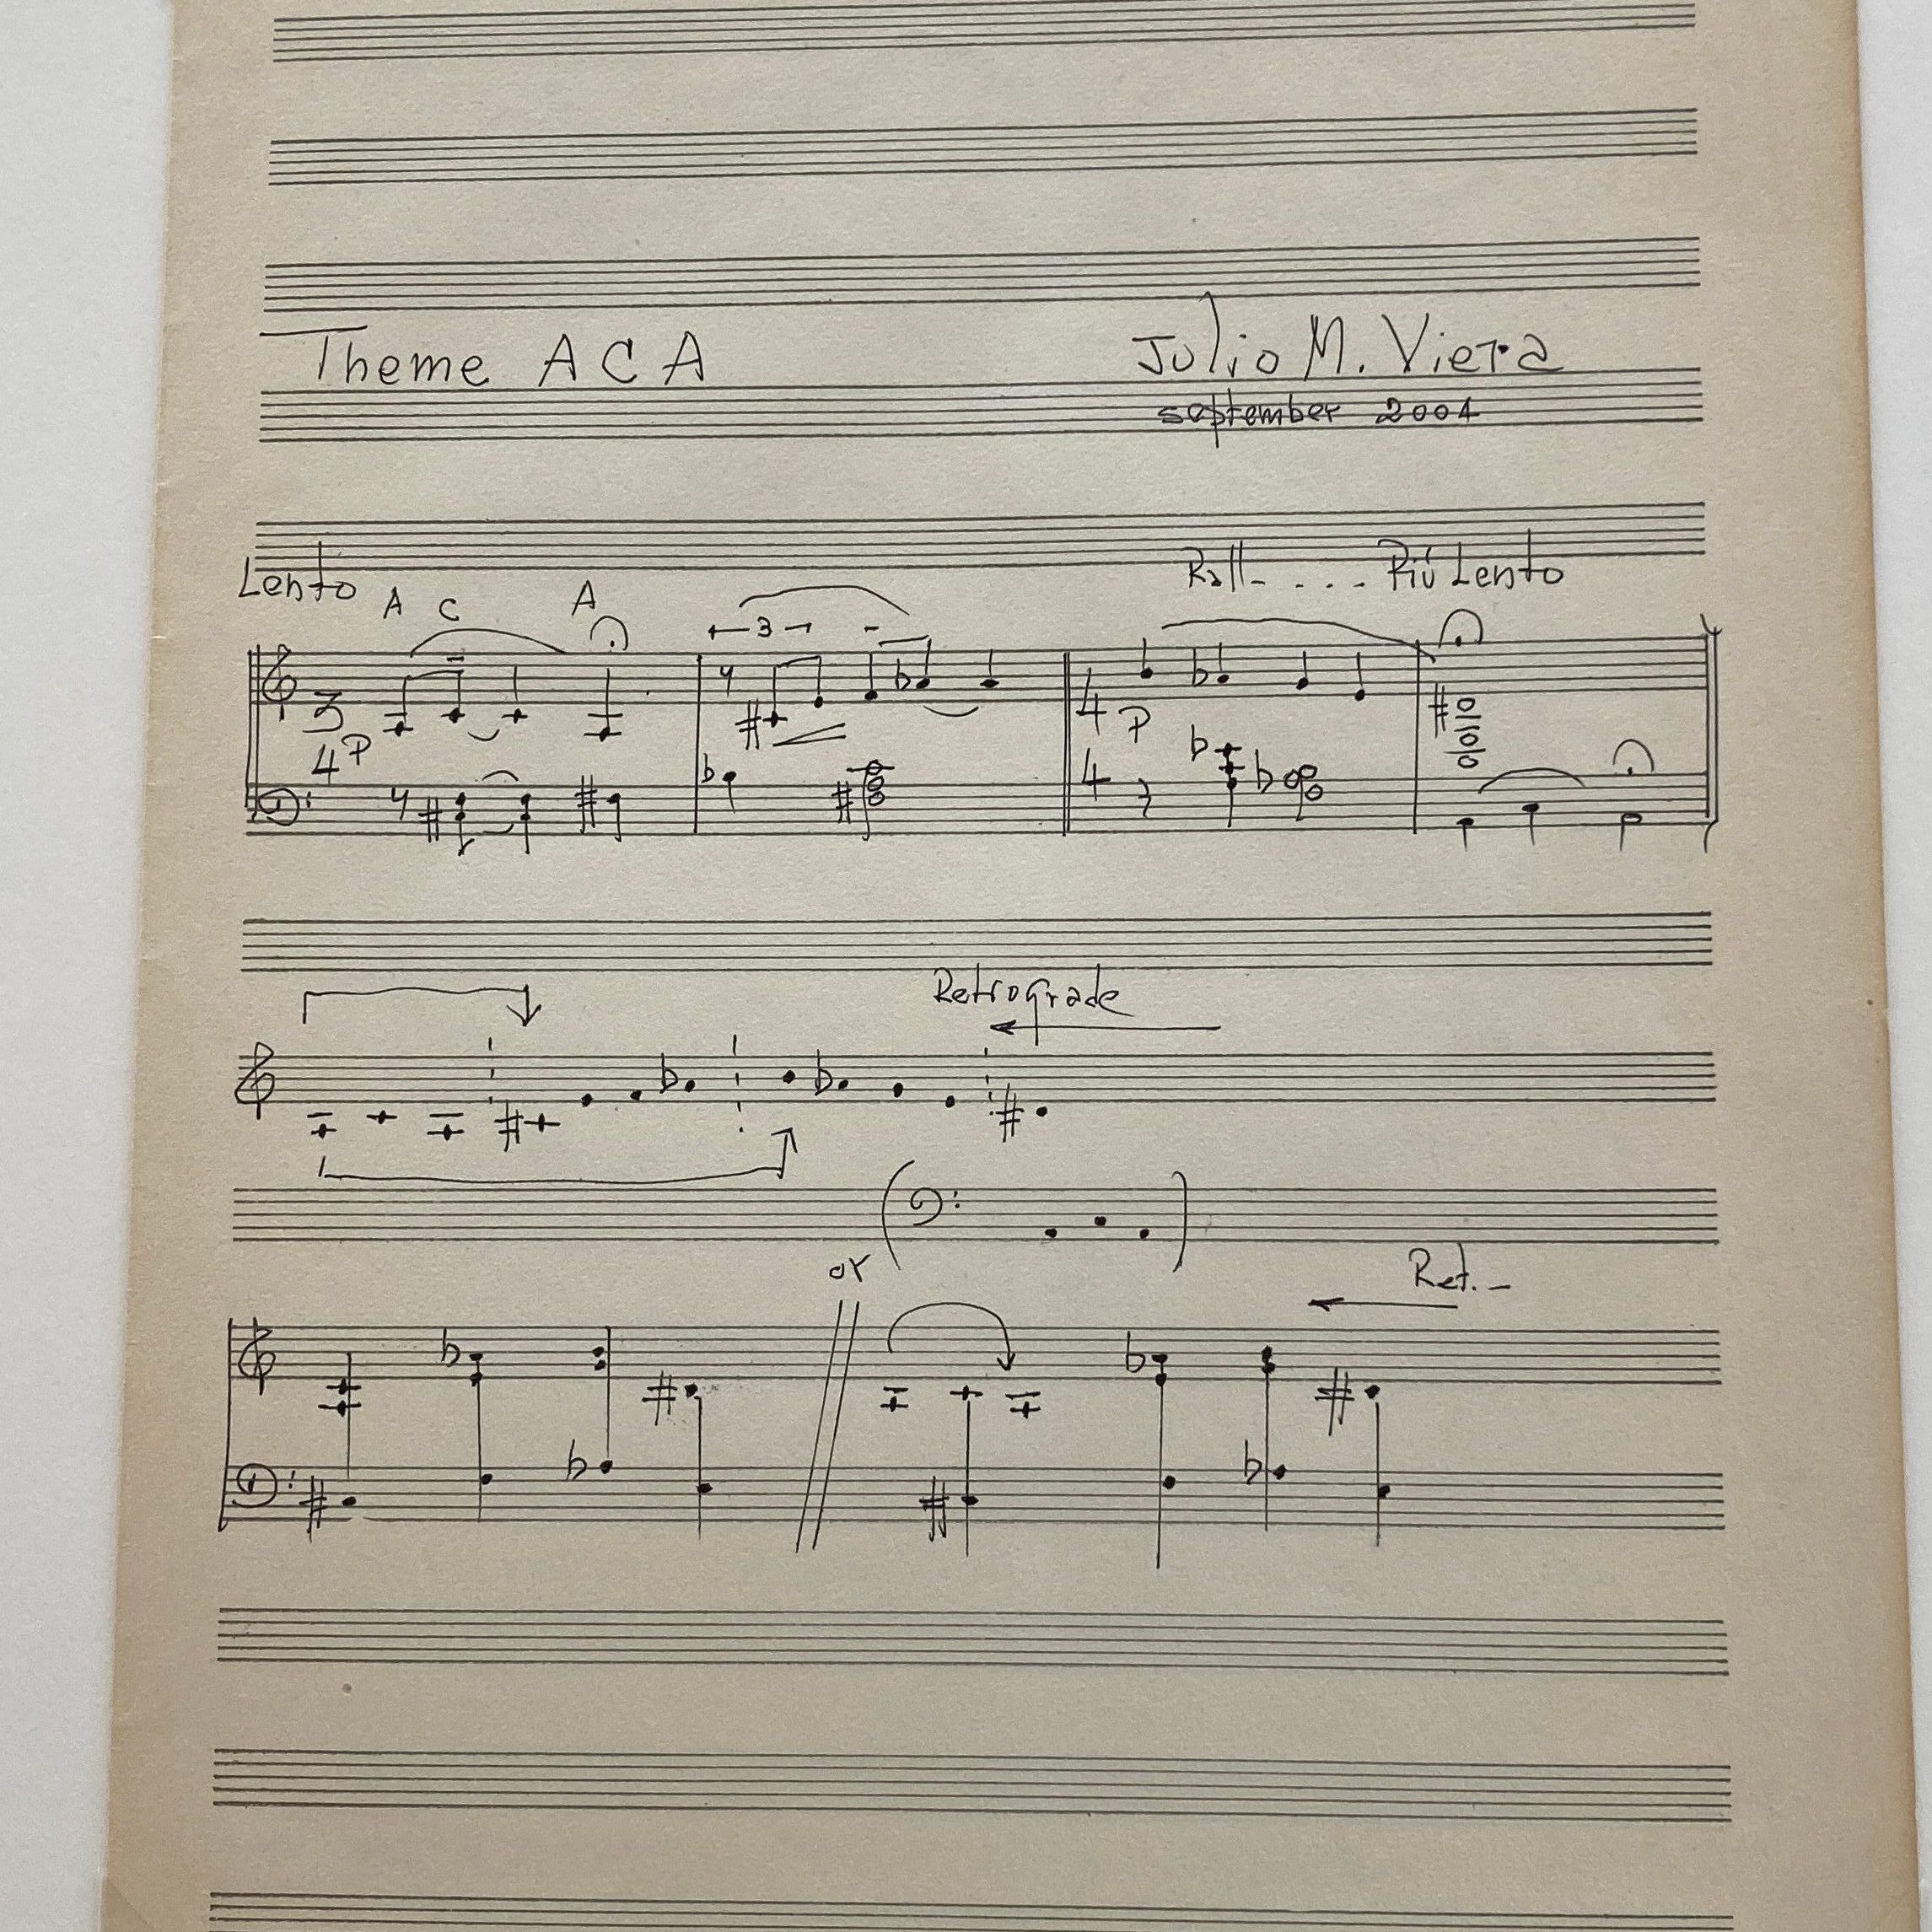 Theme A C A
Julio M. Viera
september 2004
Lento
A C A
Rall- . . . - Piú Lento
3
3
4 P
4
P
4
Retrograde
or
Ret. -